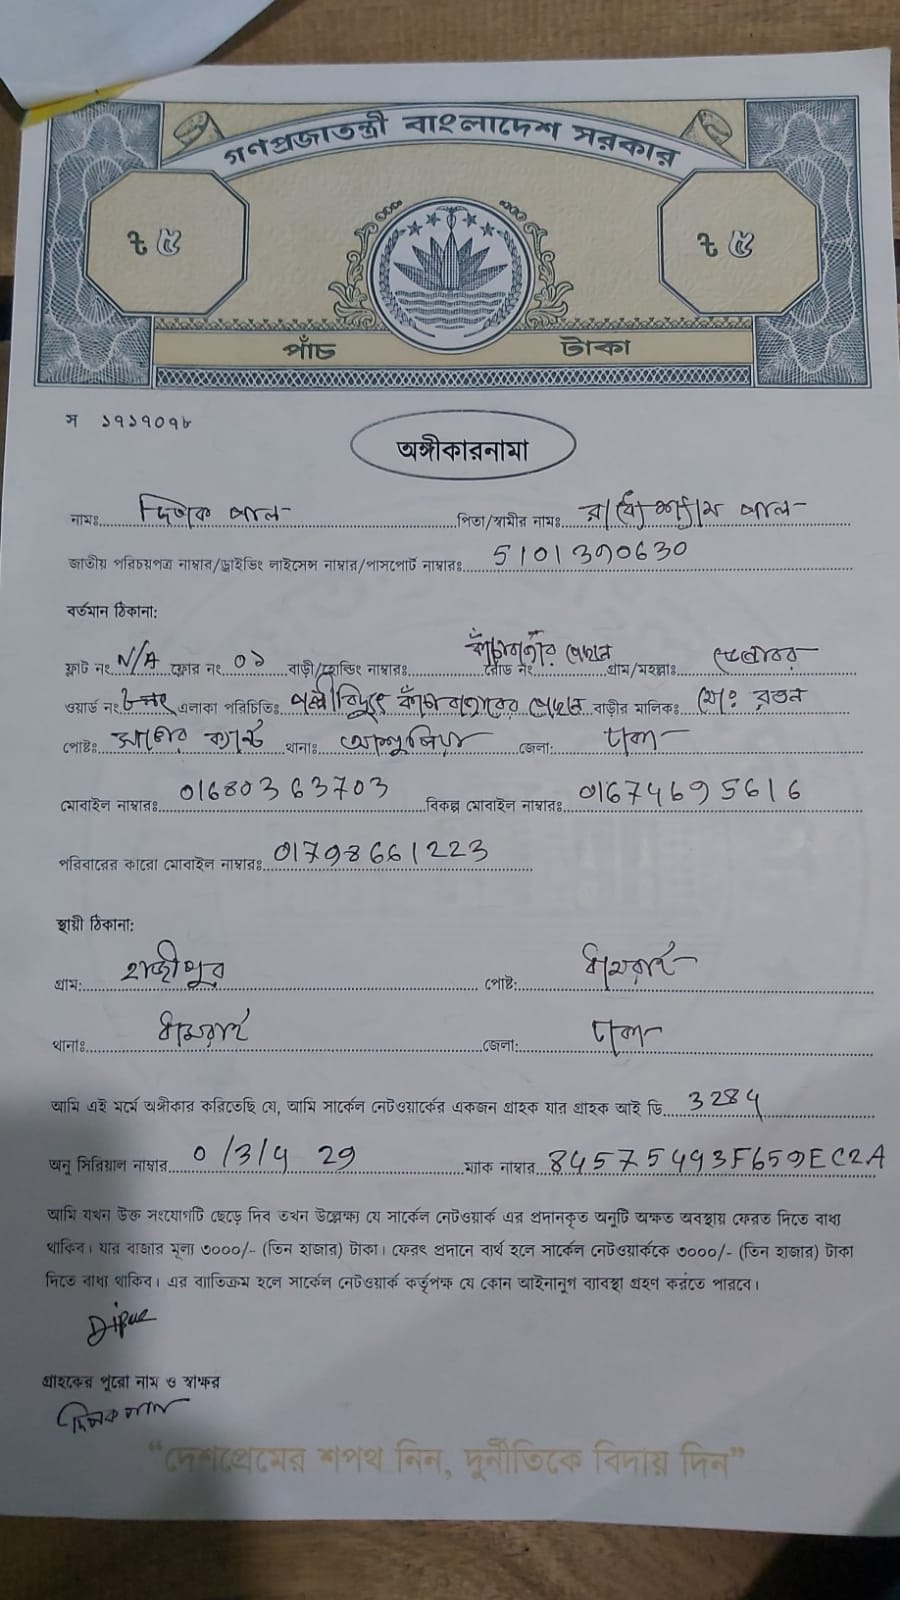 গণপ্রজাতন্ত্রী বাংলাদেশ সরকার
৳ ৫ ৳ ৫
পাঁচ টাকা
স ১৭১৭০৭৮
অঙ্গীকারনামা
নামঃ দিপক পাল পিতা/স্বামীর নামঃ রাধেশ্যাম পাল
জাতীয় পরিচয়পত্র নাম্বার/ড্রাইভিং লাইসেন্স নাম্বার/পাসপোর্ট নাম্বারঃ 5101390630
বর্তমান ঠিকানা:
ফ্লাট নং N/A ফ্লোর নং ০১ বাড়ী/হোল্ডিং নাম্বারঃ রোড নং গ্রাম/মহল্লাঃ
ওয়ার্ড নং এলাকা পরিচিতিঃ পল্লীবিদ্যুৎ কাঁচাবাজারের পেছনে বাড়ীর মালিকঃ মোঃ রতন
পোষ্টঃ সাভার ক্যান্ট থানাঃ আশুলিয়া জেলা: ঢাকা
মোবাইল নাম্বারঃ 01680363703 বিকল্প মোবাইল নাম্বারঃ 01674695616
পরিবারের কারো মোবাইল নাম্বারঃ 01798661223
স্থায়ী ঠিকানা:
গ্রাম: হাজীপুর পোষ্ট: ধামরাই
থানাঃ ধামরাই জেলা: ঢাকা
আমি এই মর্মে অঙ্গীকার করিতেছি যে, আমি সার্কেল নেটওয়ার্কের একজন গ্রাহক যার গ্রাহক আই ডি 3284
অনু সিরিয়াল নাম্বার 0/3/4 29 ম্যাক নাম্বার 84575493F659EC2A
আমি যখন উক্ত সংযোগটি ছেড়ে দিব তখন উল্লেক্ষ্য যে সার্কেল নেটওয়ার্ক এর প্রদানকৃত অনুটি অক্ষত অবস্থায় ফেরত দিতে বাধ্য
থাকিব। যার বাজার মূল্য ৩০০০/- (তিন হাজার) টাকা। ফেরৎ প্রদানে ব্যর্থ হলে সার্কেল নেটওয়ার্ককে ৩০০০/- (তিন হাজার) টাকা
দিতে বাধ্য থাকিব। এর ব্যতিক্রম হলে সার্কেল নেটওয়ার্ক কর্তৃপক্ষ যে কোন আইনানুগ ব্যাবস্থা গ্রহণ করতে পারবে।
Dipak
গ্রাহকের পুরো নাম ও স্বাক্ষর
দিপক পাল
“দেশপ্রেমের শপথ নিন, দুর্নীতিকে বিদায় দিন”